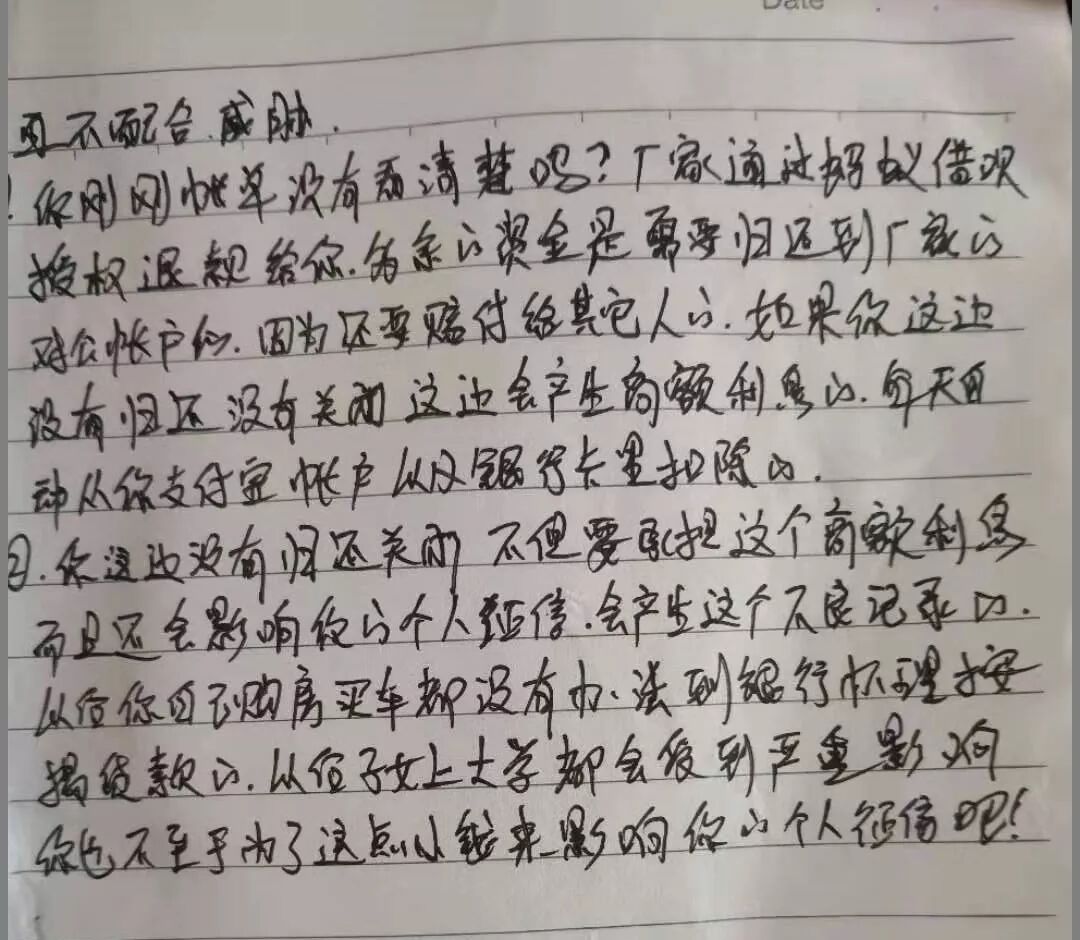 Date
四不配合.威胁.
1.你刚刚帐单没有看清楚吗?厂家通过蚂蚁借呗
授权退款给你.多余的资金是需要归还到厂家的
对公帐户的.因为还要赔付给其它人的.如果你这边
没有归还没有关闭这边会产生高额利息的.每天自
动从你支付宝帐户以及银行卡里扣除的.
2.你这边没有归还关闭不但要承担这个高额利息
而且还会影响你的个人征信.会产生这个不良记录的.
以后你自己购房买车都没有办法到银行办理按
揭贷款的.以后子女上大学都会受到严重影响
你也不至于为了这点小钱来影响你的个人征信吧!